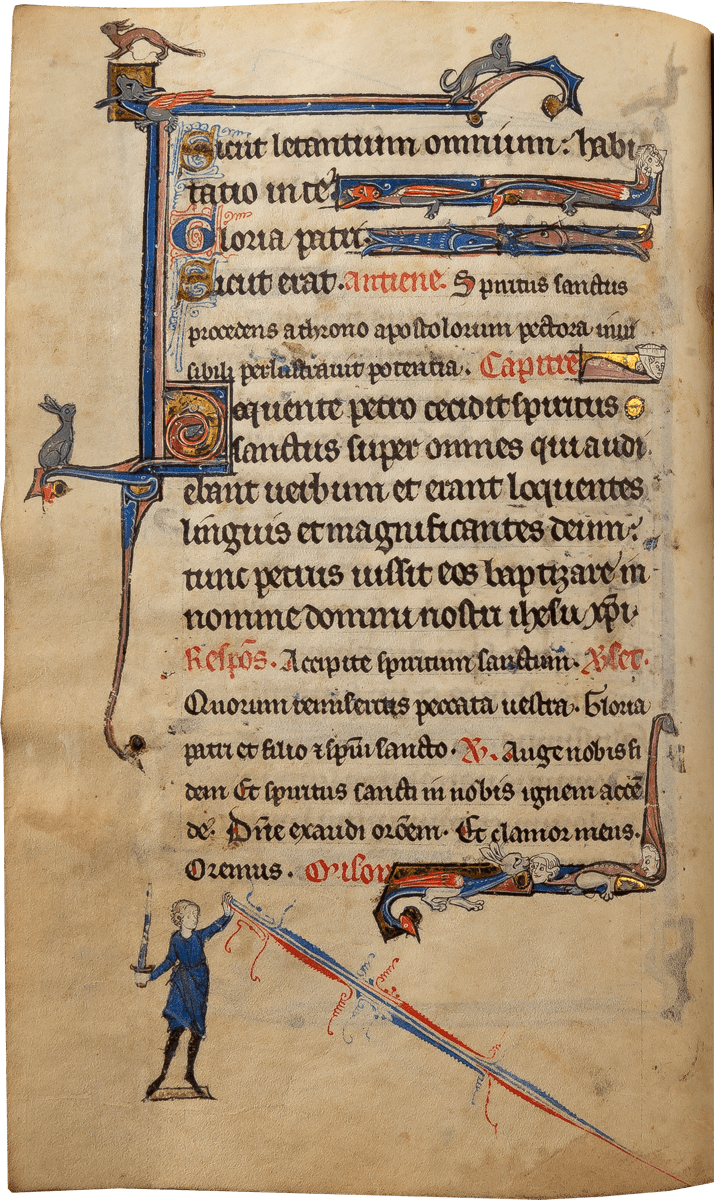 Sicut letantium omnium: habi
tatio in te.
Gloria patri.
Sicut erat. antiene. Spiritus sanctus
procedens a throno apostolorum pectora inui
sibili perlustrauit potentia. Capitre
Loquente petro cecidit spiritus
sanctus super omnes qui audi
ebant uerbum et erant loquentes
linguis et magnificantes deum:
tunc petrus iussit eos baptizare in
nomine domini nostri ihesu xp̄i.
Respōs. Accipite spiritum sanctum. Vʒset.
Quorum remiseritis peccata uestra. Gloria
patri et filio ⁊ sp̄ui sancto. ℣. Auge nobis fi
dem Et spiritus sancti in nobis ignem accē
de. Dn̄e exaudi orōem. Et clamor meus.
Oremus. Orison